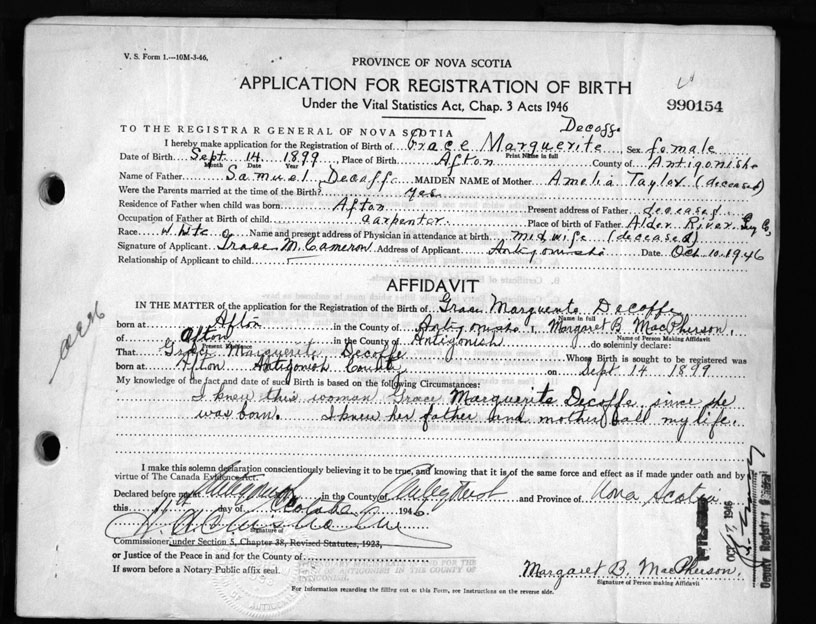 V. S. Form 1.—10M-3-46.
PROVINCE OF NOVA SCOTIA
APPLICATION FOR REGISTRATION OF BIRTH
Under the Vital Statistics Act, Chap. 3 Acts 1946
990154
TO THE REGISTRAR GENERAL OF NOVA SCOTIA
Decoffe
I hereby make application for the Registration of Birth of Grace Marguerite Sex female
Print Name in full
Date of Birth Sept 14 1899 Place of Birth Afton County of Antigonish
Month Date Year
Name of Father Samuel Decoffe MAIDEN NAME of Mother Amelia Taylor (deceased)
Were the Parents married at the time of the Birth? yes
Residence of Father when child was born Afton Present address of Father deceased
Occupation of Father at Birth of child carpenter Place of birth of Father Alder River Guy Co,
Race white Name and present address of Physician in attendance at birth midwife (deceased)
Signature of Applicant Grace M. Cameron Address of Applicant Antigonish Date Oct 10 1946
Relationship of Applicant to child
AFFIDAVIT
IN THE MATTER of the application for the Registration of the Birth of Grace Marguerite Decoffe
Name in full
born at Afton in the County of Antigonish I, Margaret B. MacPherson,
Name of Person Making Affidavit
of Afton in the County of Antigonish do solemnly declare:
Present Residence
That Grace Marguerite Decoffe Whose Birth is sought to be registered was
born at Afton Antigonish County on Sept 14 1899
My knowledge of the fact and date of such Birth is based on the following Circumstances:
I knew this woman Grace Marguerite Decoffe since she
was born. I knew her father and mother all my life.
I make this solemn declaration conscientiously believing it to be true, and knowing that it is of the same force and effect as if made under oath and by
virtue of The Canada Evidence Act.
Declared before me at Antigonish in the County of Antigonish and Province of Nova Scotia
this day of October 1946
Signature of
Commissioner under Section 5, Chapter 38, Revised Statutes, 1923,
or Justice of the Peace in and for the County of
If sworn before a Notary Public affix seal.
Margaret B. MacPherson.
Signature of Person making Affidavit
For Information regarding the filling out of this Form, see Instructions on the reverse side.
OCT 1946
Deputy Registrar